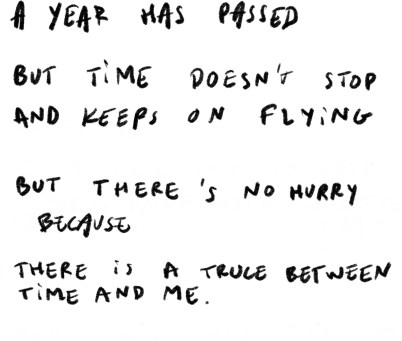 A YEAR HAS PASSED
BUT TiME DOESN'T STOP
AND KEEPS ON FLYiNG
BUT THERE'S NO HURRY
BECAUSE
THERE iS A TRUCE BETWEEN
TiME AND ME.